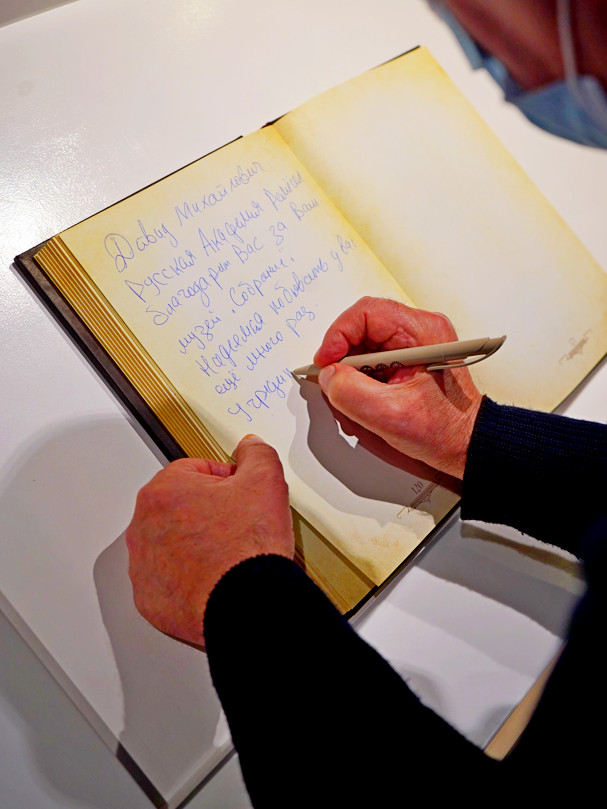 Давид Михайлович
Русская Академия Радио
благодарит Вас за Ваш
музей, собрание,
Надеемся побывать у Вас
ещё много раз
120